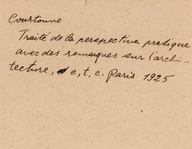 Courtonne
Traité de la perspective pratique
avec des remarques sur l'archi-
tecture, e, t, c. Paris 1925